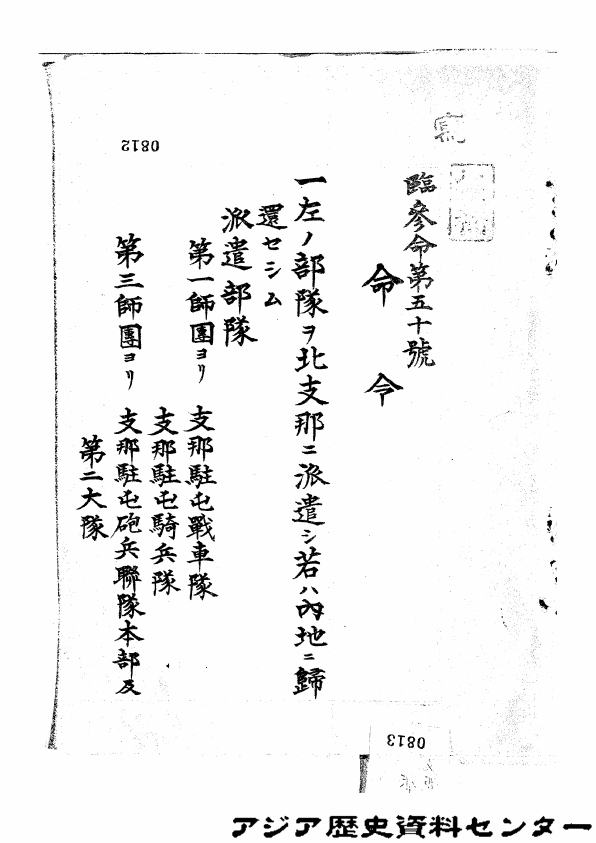 寫
臨參命第五十號
命令
一左ノ部隊ヲ北支那ニ派遣シ若ハ內地ニ歸
還セシム
派遣部隊
第一師團ヨリ 支那駐屯戰車隊
支那駐屯騎兵隊
第三師團ヨリ 支那駐屯砲兵聯隊本部及
第二大隊
0812
0813
アジア歴史資料センター